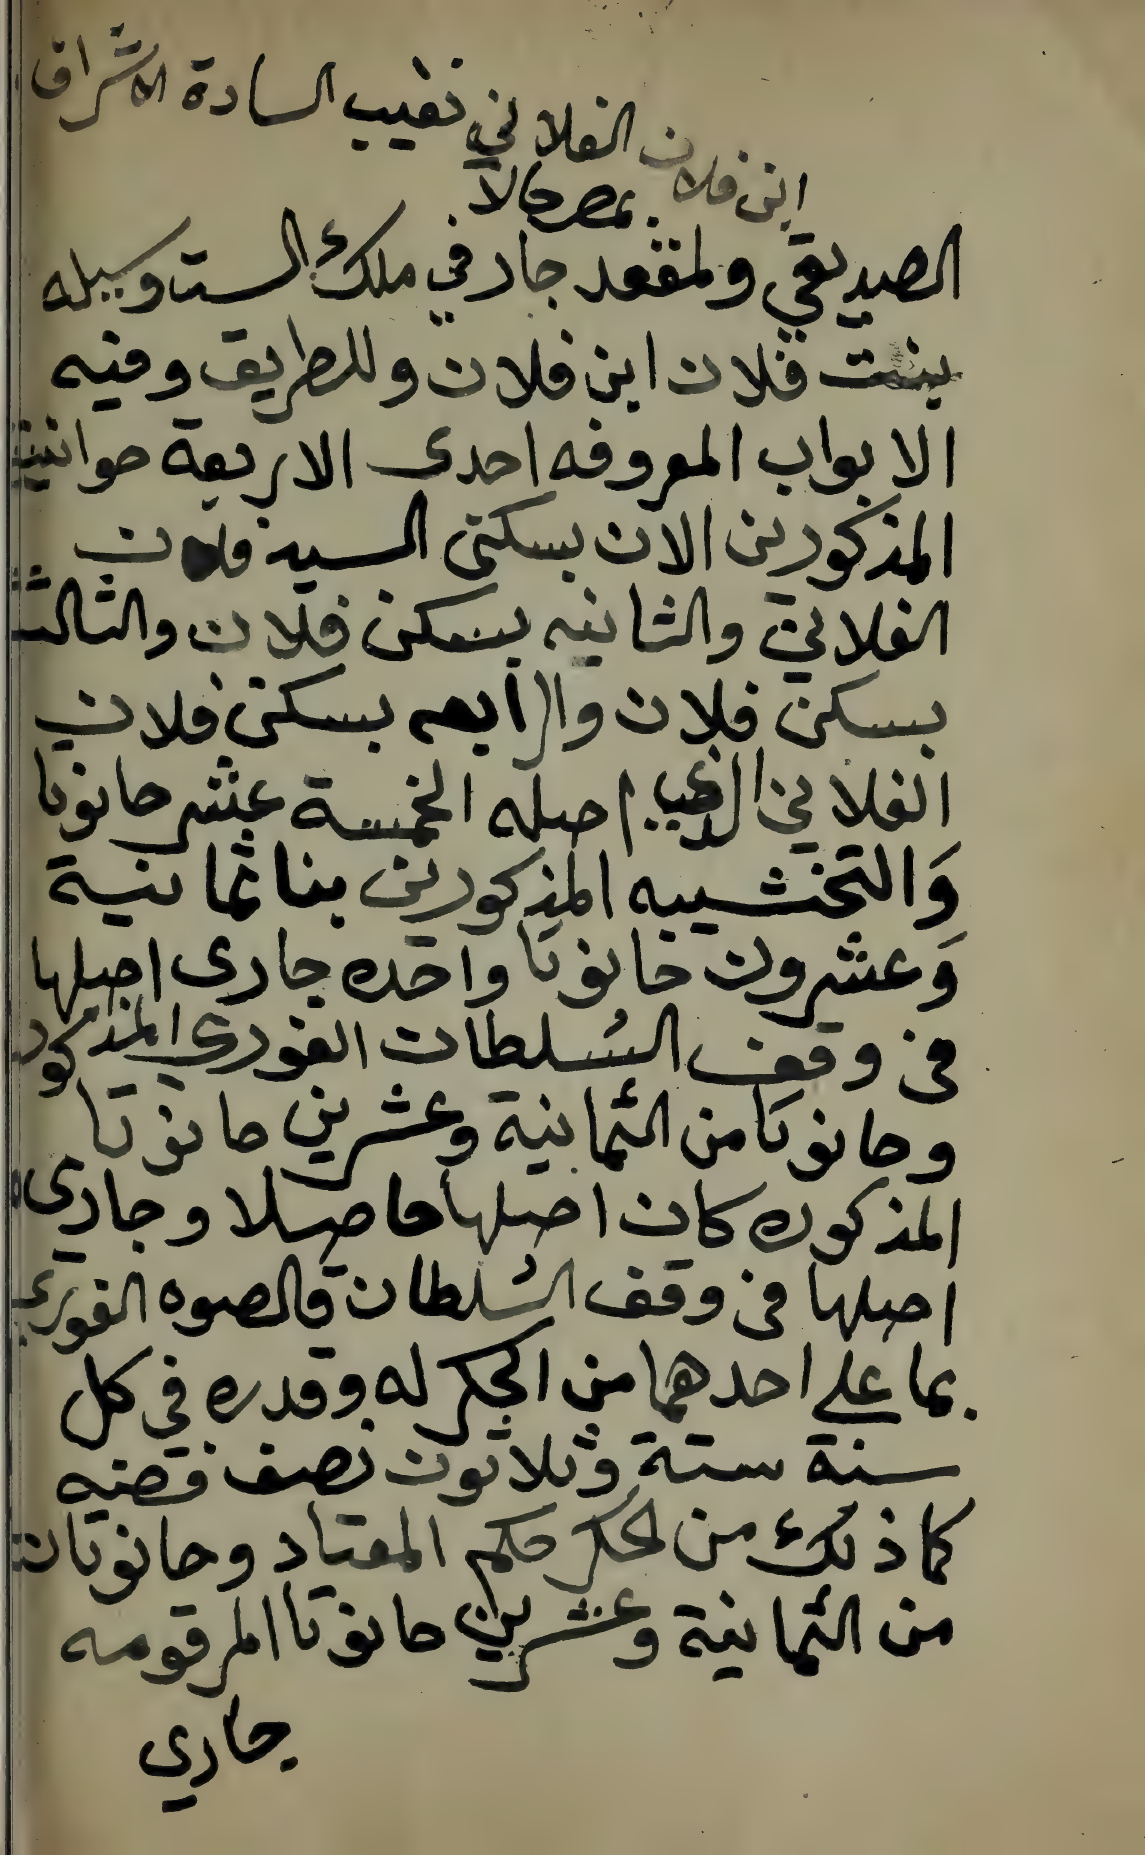 ابن فلان الفلاني نقيب السادة الاشراف
بمصر حالا
الصديقي ولمقعد جار في ملك الست وسيله
بنت فلان ابن فلان وللطريق وفيه
الابواب المعروفه احدى الاربعة حوانيت
المذكورين الان بسكن السيد فلان
الفلاني والثانيه بسكن فلان والثالث
بسكن فلان والرابعه بسكن فلان
الفلاني اصله الخمسة عشر حانوتا
والتخشيبه المذكورين بنا ثمانية
وعشرون حانوتا واحده جارى اصلها
فى وقف السلطان الغوري المذكور
وحانوتا من الثمانية وعشرين حانوتا
المذكوره كان اصلها حاصلا وجارى
اصلها فى وقف السلطان قالصوه الغوري
بما على احدهما من الحكر له وقدره فى كل
سنة ستة وثلاثون نصف فضه
كما ذلك من الحكر حكم المعتاد وحانوتان
من الثمانية وعشرين حانوتا المرقومه
جاري